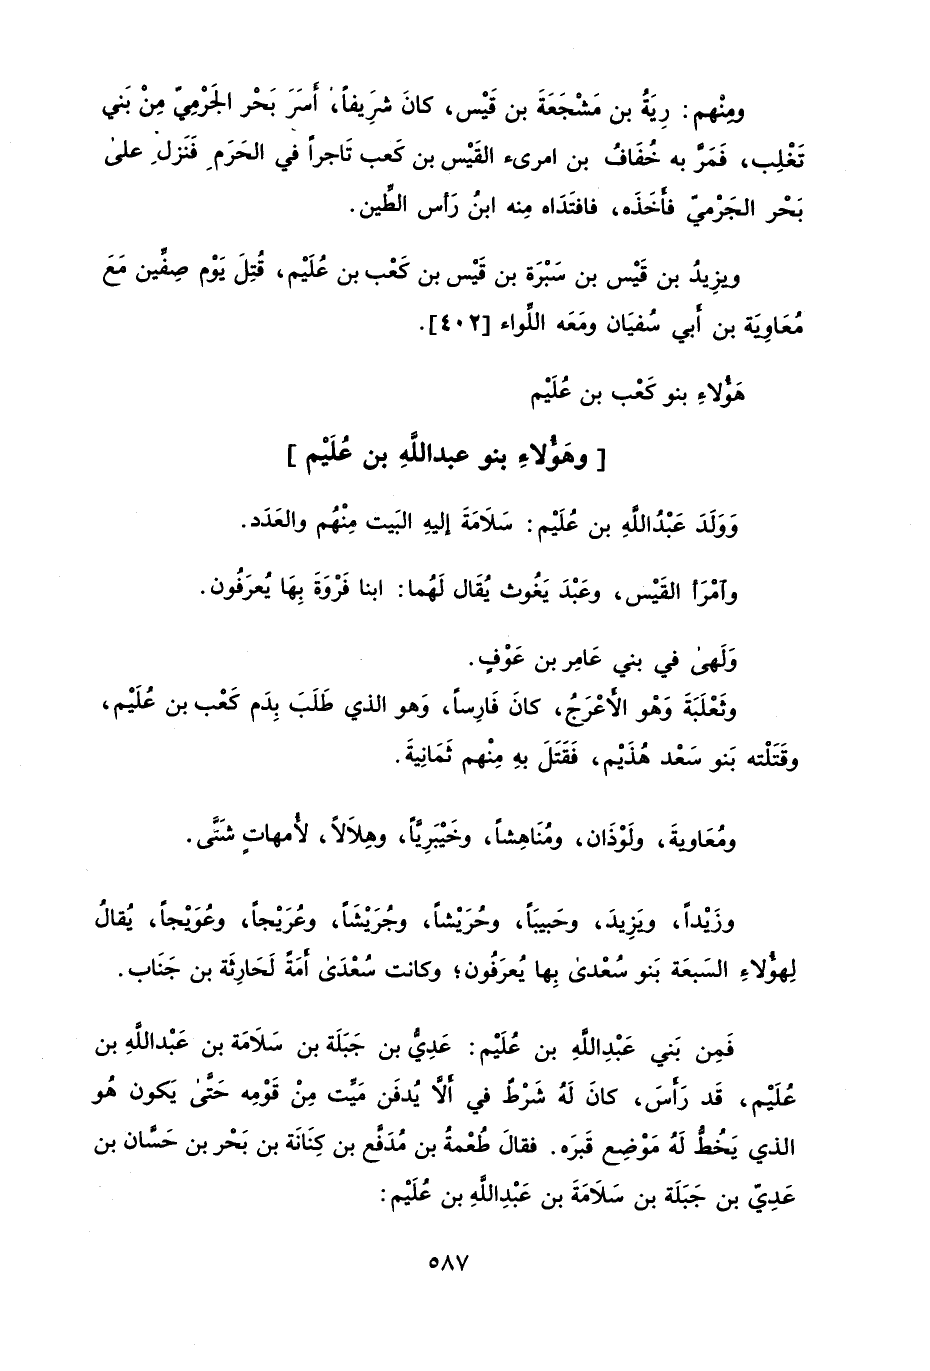 ومِنْهم: رِيَةُ بن مَشْجَعَةَ بن قَيْس، كانَ شرَيفاً، أَسَرَ بَحْر الجَرْمِيّ مِنْ بَني
تَغْلِب، فَمَرَّ به خُفَافُ بن امرىء القَيْس بن كَعب تَاجراً في الحَرَمِ فَنَزل على
بَحْر الجَرْميّ فأَخَذَه، فافتَدَاه مِنه ابنُ رَأس الطِّين.
ويزِيدُ بن قَيْس بن سَبْرَة بن قَيْس بن كَعْب بن عُلَيْم، قُتِلَ يَوْم صِفِّين مَعَ
مُعَاوِيَة بن أَبي سُفيَان ومَعَه اللِّواء [٤٠٢].
هَؤُلاءِ بنو كَعْب بن عُلَيْم
[ وهَؤُلاءِ بنو عبداللَّهِ بن عُلَيْم ]
وَوَلَدَ عَبْدُاللَّهِ بن عُلَيْم: سَلَامَةَ إليهِ البَيت مِنْهُم والعَدَد.
وآمْرَأ القَيْس، وعَبْدَ يَغُوث يُقَال لَهُما: ابنا فَرْوَةَ بِهَا يُعرَفُون.
وَلَهىٰ في بني عَامِر بن عَوْفٍ.
وثَعْلَبَةَ وَهْوَ الأَعْرَجُ، كانَ فَارِساً، وَهو الذي طَلَبَ بِدَم كَعْب بن عُلَيْم،
وقَتَلْته بَنو سَعْد هُذَيْم، فَقَتَلَ بهِ مِنْهم ثَمَانِيةَ.
ومُعَاويةَ، ولَوْذَان، ومُنَاهِشاً، وخَيْبَرِيَّاً، وهِلَالاً، لأُمهاتٍ شتَّى.
وزَيْداً، ويَزِيدَ، وحَبيبَاً، وحُرَيْشاً، وجُرَيْشَاً، وعُرَيْجاً، وعُوَيْجاً، يُقالُ
لِهؤُلاءِ السَبعَة بَنو سُعْدىٰ بِها يُعرَفُون؛ وكانت سُعْدَىٰ أَمَةً لَحَارِثَة بن جَنَاب.
فَمِن بَني عَبْدِاللَّهِ بن عُلَيْم: عَدِيُّ بن جَبَلَة بن سَلَامَة بن عَبْداللَّهِ بن
عُلَيْم، قَد رَأَسَ، كانَ لَهُ شَرْطٌ في أَلَّا يُدفَن مَيِّت مِنْ قَوْمِه حَتَّىٰ يَكون هُو
الذي يَخُطُّ لَهُ مَوْضِع قَبرَه. فقالَ طُعْمةُ بن مُدَفَّع بن كِنَانَة بن بَحْر بن حَسَّان بن
عَدِيّ بن جَبَلَة بن سَلَامَةَ بن عَبْدِاللَّهِ بن عُلَيْم:
٥٨٧